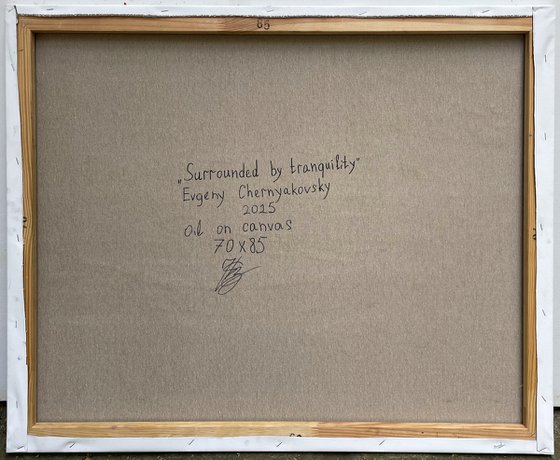 85
„Surrounded by tranquility"
Evgeny Chernyakovsky
2025
Oil on canvas
70x85